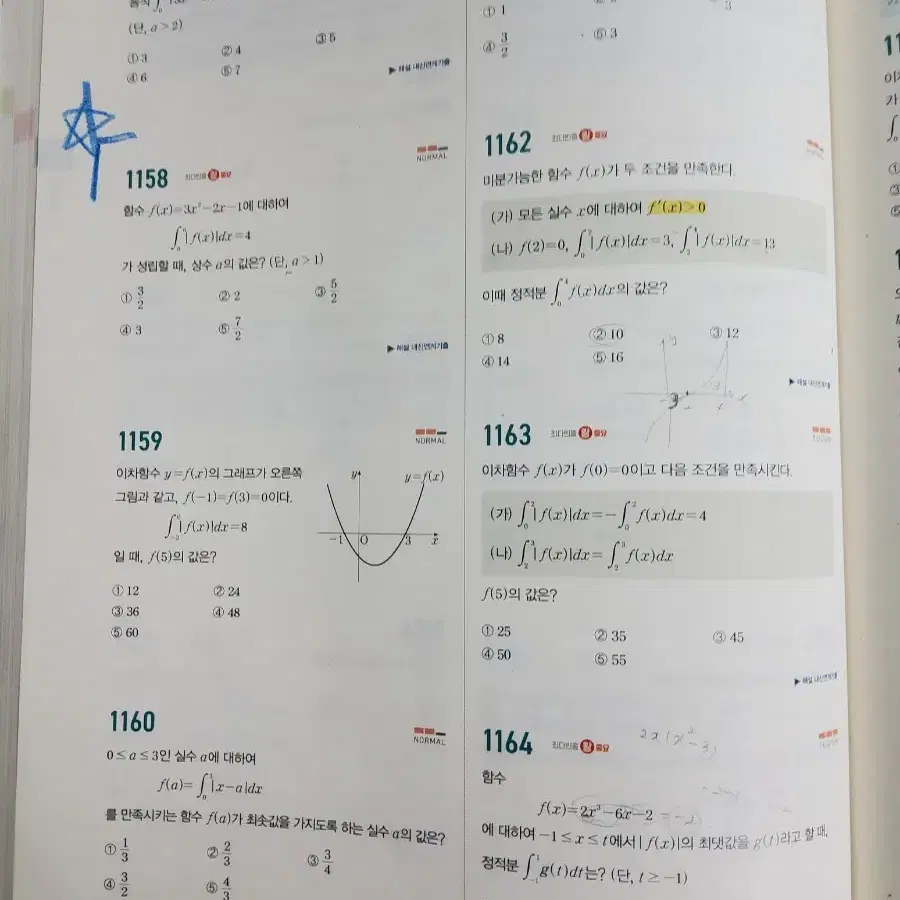 (단, a>2)
① 3 ② 4 ③ 5
④ 6 ⑤ 7
▶ 해설 내신연계기출
NORMAL
1158 최다빈출 왕 중요
함수 f(x)=3x²-2x-1에 대하여
∫₀ᵃ|f(x)|dx=4
가 성립할 때, 상수 a의 값은? (단, a>1)
① 3/2 ② 2 ③ 5/2
④ 3 ⑤ 7/2
▶ 해설 내신연계기출
1159
NORMAL
이차함수 y=f(x)의 그래프가 오른쪽
그림과 같고, f(-1)=f(3)=0이다.
|f(x)|dx=8
일 때, f(5)의 값은?
y y=f(x)
-1 O 3 x
① 12 ② 24
③ 36 ④ 48
⑤ 60
1160
NORMAL
0≤a≤3인 실수 a에 대하여
|x-a|dx
를 만족시키는 함수 f(a)가 최솟값을 가지도록 하는 실수 a의 값은?
① 1/3 ② 2/3 ③ 3/4
④ 3/2 ⑤ 4/3
① 1
3
④ 3/2 ⑤ 3
1162 최다빈출 왕 중요
미분가능한 함수 f(x)가 두 조건을 만족한다.
(가) 모든 실수 x에 대하여 f′(x)>0
(나) f(2)=0, ∫₀²|f(x)|dx=3, ∫₂⁴|f(x)|dx=13
이때 정적분 ∫₀⁴f(x)dx의 값은?
① 8 ② 10 ③ 12
④ 14 ⑤ 16
y
x
▶ 해설 내신연계기출
1163 최다빈출 왕 중요
TOUGH
이차함수 f(x)가 f(0)=0이고 다음 조건을 만족시킨다.
(가) ∫₀²|f(x)|dx=-∫₀²f(x)dx=4
(나) ∫₂³|f(x)|dx=∫₂³f(x)dx
f(5)의 값은?
① 25 ② 35 ③ 45
④ 50 ⑤ 55
▶ 해설 내신연계기출
1164 최다빈출 왕 중요
TOUGH
2x(x²-3)
함수
f(x)=2x³-6x-2
에 대하여 -1≤x≤t에서 |f(x)|의 최댓값을 g(t)라고 할 때,
정적분 ∫₋₁¹g(t)dt는? (단, t≥-1)